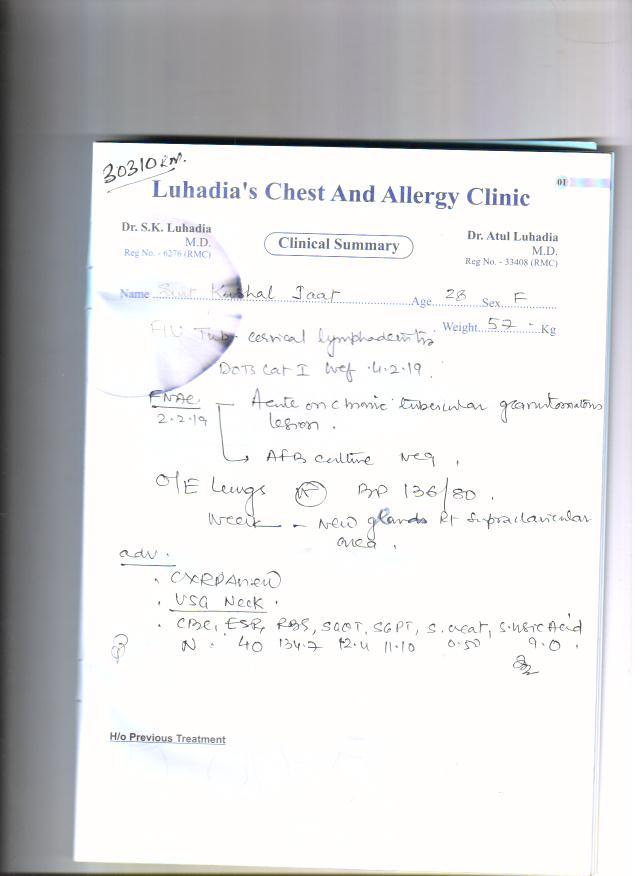 30310 km.
01
Luhadia's Chest And Allergy Clinic
Dr. S.K. Luhadia
M.D.
Reg No. - 6276 (RMC)
Clinical Summary
Dr. Atul Luhadia
M.D.
Reg No. - 33408 (RMC)
Name Smt Kushal Jaat Age. 28 Sex. F
Weight. 57 - Kg
F/U Tub. cervical lymphadenitis
DOTS Cat I wef .4.2.19.
FNAC Acute on chronic tubercular granulomatous
2.2.19 lesion.
AFB culture Neg.
O/E Lungs N BP 136/80.
Neck - New glands Rt supraclavicular
area.
adv.
. CXRPA view
. USG Neck.
. CBC, ESR, RBS, SGOT, SGPT, S. creat, S. uric Acid
N. 40 134.7 12.4 11.10 0.50 9.0.
H/o Previous Treatment